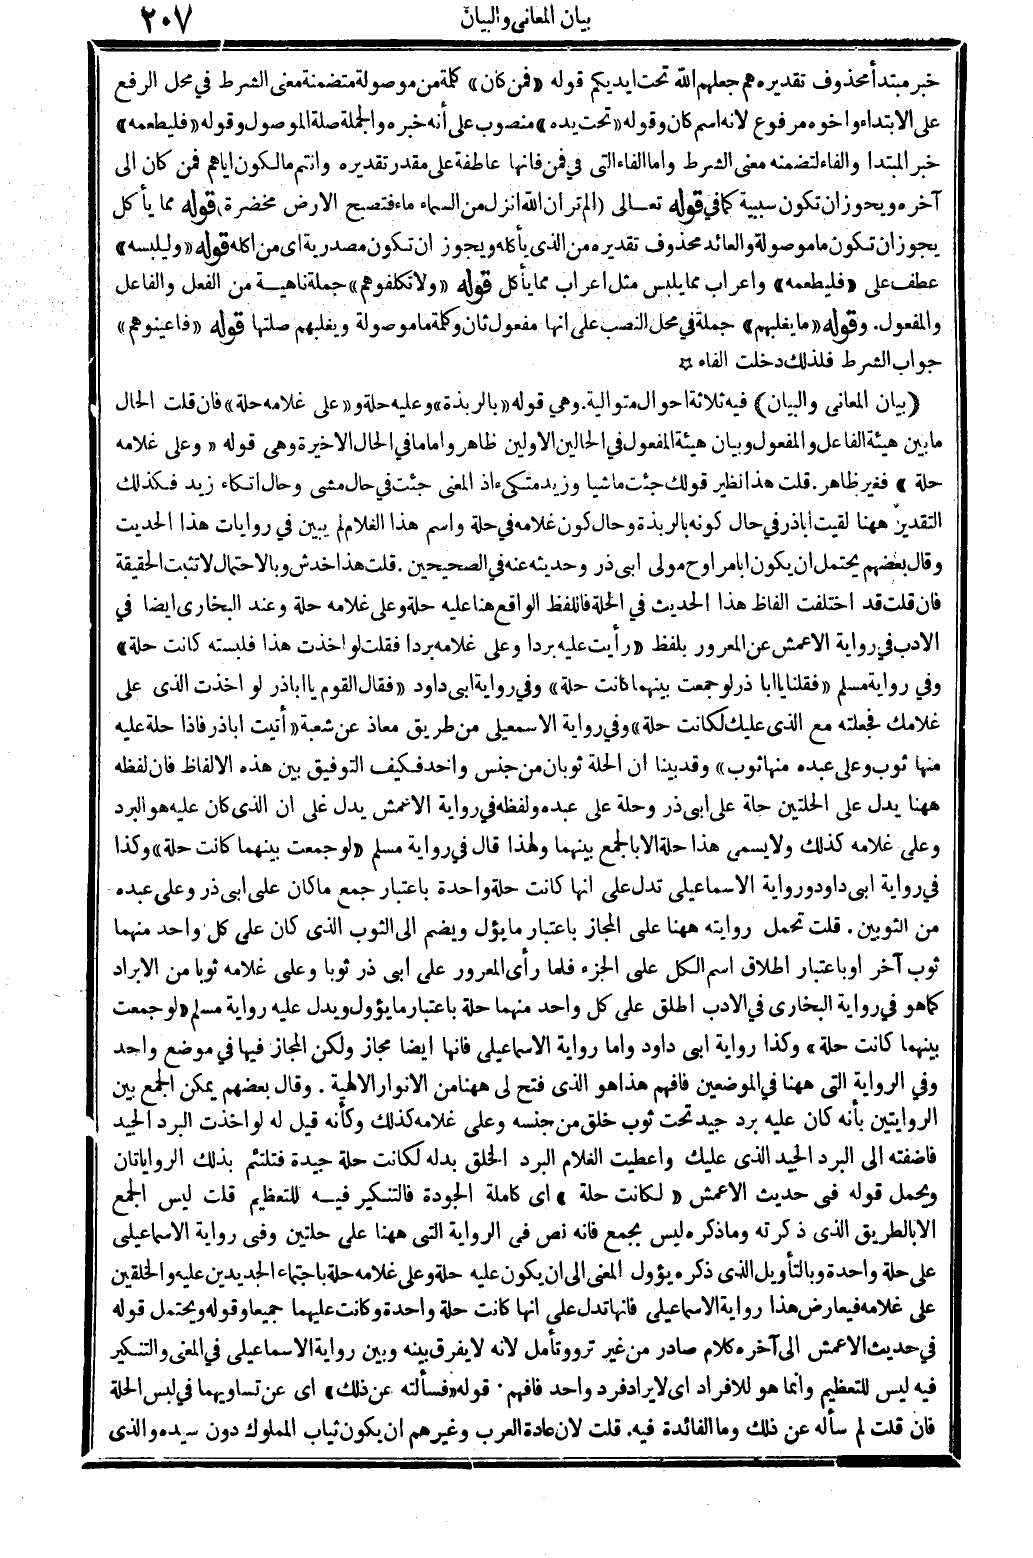 بيان المعانى والبيان ٢٠٧
خبر مبتدأ محذوف تقديره هم جعلهم الله تحت ايديكم قوله «فمن كان» كلمة من موصولة متضمنة معنى الشرط في محل الرفع
على الابتداء واخوه مرفوع لانه اسم كان وقوله «تحت يده» منصوب على أنه خبره والجملة صلة الموصول وقوله «فليطعمه»
خبر المبتدا والفاء لتضمنه معنى الشرط واما الفاء التى في فمن فانها عاطفة على مقدر تقديره وانتم مالكون اياهم فمن كان الى
آخره ويجوز ان تكون سببية كما في قوله تعالى (الم تر ان الله انزل من السماء ماء فتصبح الارض مخضرة) قوله مما يأكل
يجوز ان تكون ما موصولة والعائد محذوف تقديره من الذى يأكله ويجوز ان تكون مصدرية اى من اكله قوله «وليلبسه»
عطف على «فليطعمه» واعراب مما يلبس مثل اعراب مما يأكل قوله «ولا تكلفوهم» جملة ناهية من الفعل والفاعل
والمفعول. وقوله «ما يغلبهم» جملة في محل النصب على انها مفعول ثان وكلمة ما موصولة ويغلبهم صلتها قوله «فاعينوهم»
جواب الشرط فلذلك دخلت الفاء ۞
(بيان المعانى والبيان) فيه ثلاثة احوال متوالية. وهي قوله «بالربذة» وعليه حلة و «على غلامه حلة» فان قلت الحال
ما بين هيئة الفاعل والمفعول وبيان هيئة المفعول في الحالين الاولين ظاهر واما ما في الحال الاخيرة وهى قوله «وعلى غلامه
حلة» فغير ظاهر. قلت هذا نظير قولك جئت ماشيا وزيد متكىء اذ المعنى جئت في حال مشى وحال اتكاء زيد فكذلك
التقدير ههنا لقيت اباذر في حال كونه بالربذة وحال كون غلامه في حلة واسم هذا الغلام لم يبين في روايات هذا الحديث
وقال بعضهم يحتمل ان يكون ابا مراوح مولى ابى ذر وحديثه عنه في الصحيحين. قلت هذا خدش وبالاحتمال لا تثبت الحقيقة
فان قلت قد اختلفت الفاظ هذا الحديث في الحلة فاللفظ الواقع هنا عليه حلة وعلى غلامه حلة وعند البخارى ايضا في
الادب في رواية الاعمش عن المعرور بلفظ «رأيت عليه بردا وعلى غلامه بردا فقلت لو اخذت هذا فلبسته كانت حلة»
وفي رواية مسلم «فقلنا يا ابا ذر لو جمعت بينهما كانت حلة» وفي رواية ابى داود «فقال القوم يا اباذر لو اخذت الذى على
غلامك فجعلته مع الذى عليك لكانت حلة» وفي رواية الاسمعيلى من طريق معاذ عن شعبة «أتيت اباذر فاذا حلة عليه
منها ثوب وعلى عبده منها ثوب» وقد بينا ان الحلة ثوبان من جنس واحد فكيف التوفيق بين هذه الالفاظ فان لفظه
ههنا يدل على الحلتين حلة على ابى ذر وحلة على عبده ولفظه في رواية الاعمش يدل على ان الذى كان عليه هو البرد
وعلى غلامه كذلك ولا يسمى هذا حلة الا بالجمع بينهما ولهذا قال في رواية مسلم «لو جمعت بينهما كانت حلة» وكذا
في رواية ابى داود ورواية الاسماعيلى تدل على انها كانت حلة واحدة باعتبار جمع ما كان على ابى ذر وعلى عبده
من الثوبين. قلت تحمل روايته ههنا على المجاز باعتبار ما يؤل ويضم الى الثوب الذى كان على كل واحد منهما
ثوب آخر او باعتبار اطلاق اسم الكل على الجزء فلما رأى المعرور على ابى ذر ثوبا وعلى غلامه ثوبا من الابراد
كما هو في رواية البخارى في الادب اطلق على كل واحد منهما حلة باعتبار ما يؤول ويدل عليه رواية مسلم «لو جمعت
بينهما كانت حلة» وكذا رواية ابى داود واما رواية الاسماعيلى فانها ايضا مجاز ولكن المجاز فيها في موضع واحد
وفي الرواية التى ههنا في الموضعين فافهم هذا هو الذى فتح لى ههنا من الانوار الالهية. وقال بعضهم يمكن الجمع بين
الروايتين بأنه كان عليه برد جيد تحت ثوب خلق من جنسه وعلى غلامه كذلك وكأنه قيل له لو اخذت البرد الجيد
فاضفته الى البرد الجيد الذى عليك واعطيت الغلام البرد الخلق بدله لكانت حلة جيدة فتلتئم بذلك الروايتان
ويحمل قوله فى حديث الاعمش «لكانت حلة» اى كاملة الجودة فالتنكير فيه للتعظيم قلت ليس الجمع
الا بالطريق الذى ذكرته وما ذكره ليس بجمع فانه نص فى الرواية التى ههنا على حلتين وفى رواية الاسماعيلى
على حلة واحدة وبالتأويل الذى ذكره يؤول المعنى الى ان يكون عليه حلة وعلى غلامه حلة باجتماع الجديدين عليه والخلقين
على غلامه فيعارض هذا رواية الاسماعيلى فانها تدل على انها كانت حلة واحدة وكانت عليهما جميعا وقوله ويحتمل قوله
في حديث الاعمش الى آخره كلام صادر من غير ترو وتأمل لانه لا يفرق بينه وبين رواية الاسماعيلى في المعنى والتنكير
فيه ليس للتعظيم وانما هو للافراد اى لايراد فرد واحد فافهم. قوله «فسألته عن ذلك» اى عن تساويهما في لبس الحلة
فان قلت لم سأله عن ذلك وما الفائدة فيه. قلت لان عادة العرب وغيرهم ان يكون ثياب المملوك دون سيده والذى